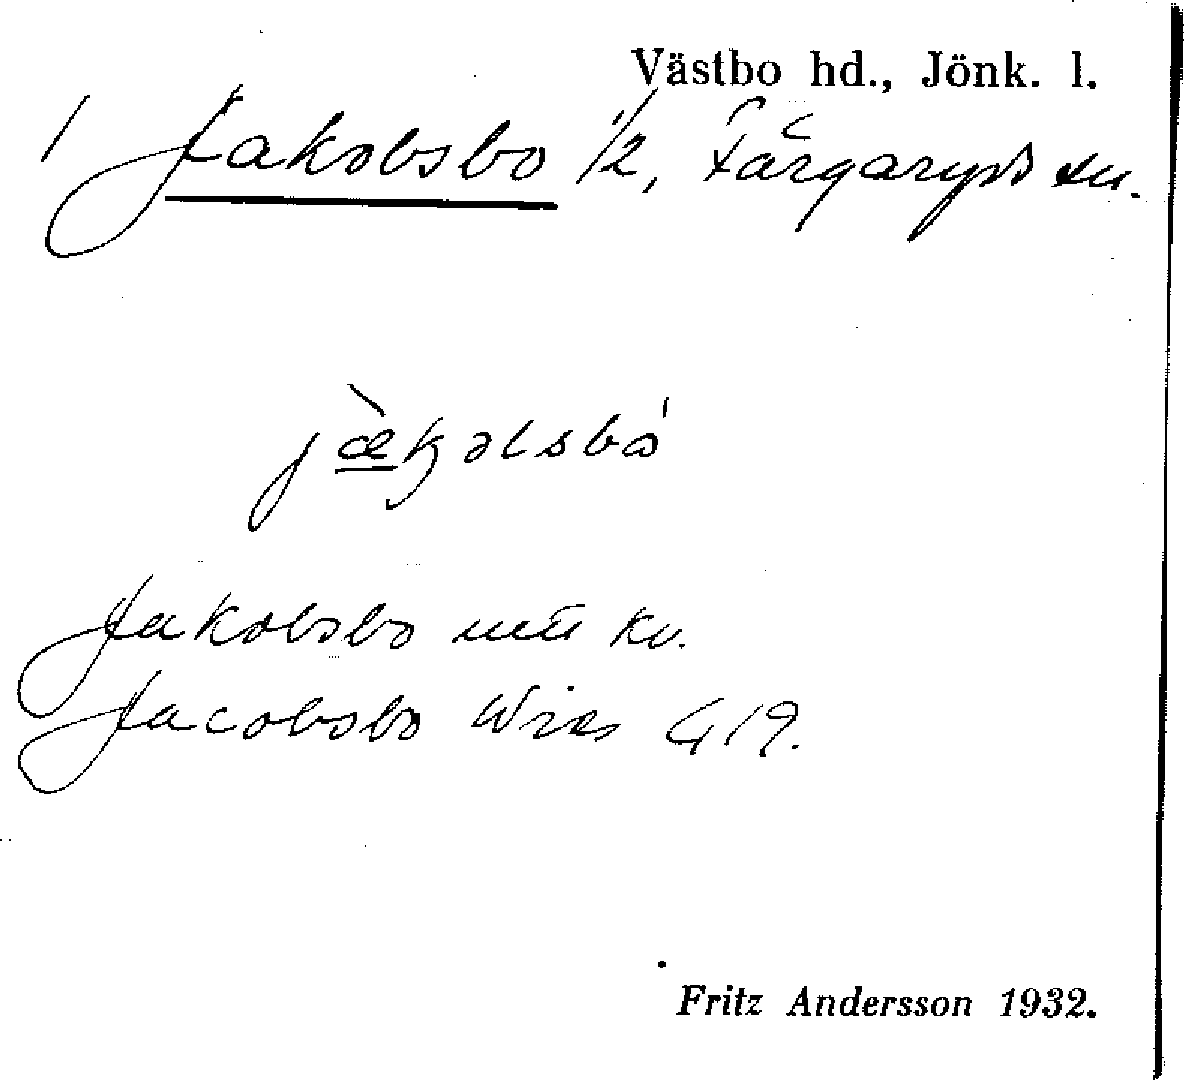 Västbo hd., Jönk. l.
/ Jakobsbo 1/2, Färgaryds sn.
jæ̀kəlsbo
Jakobsbo kv.
Jacobsbo Wies 419.
Fritz Andersson 1932.